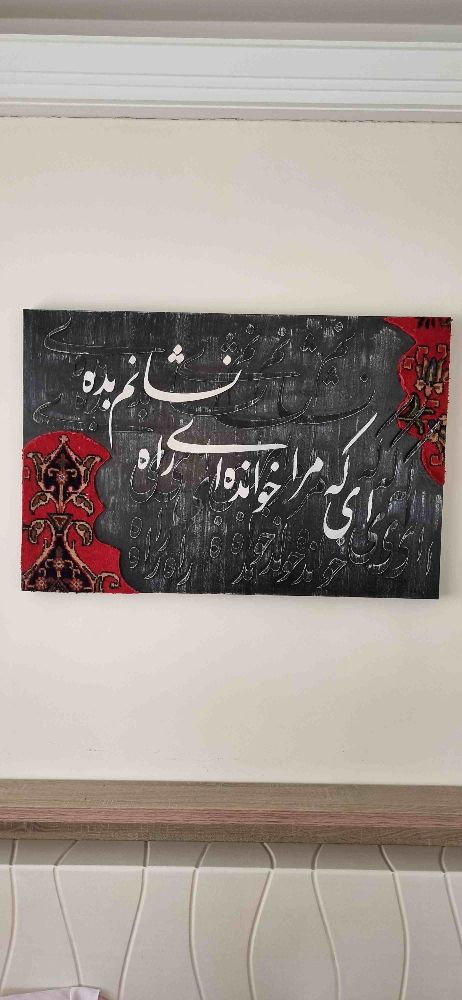 ای که مرا خوانده‌ای راه
نشانم بده